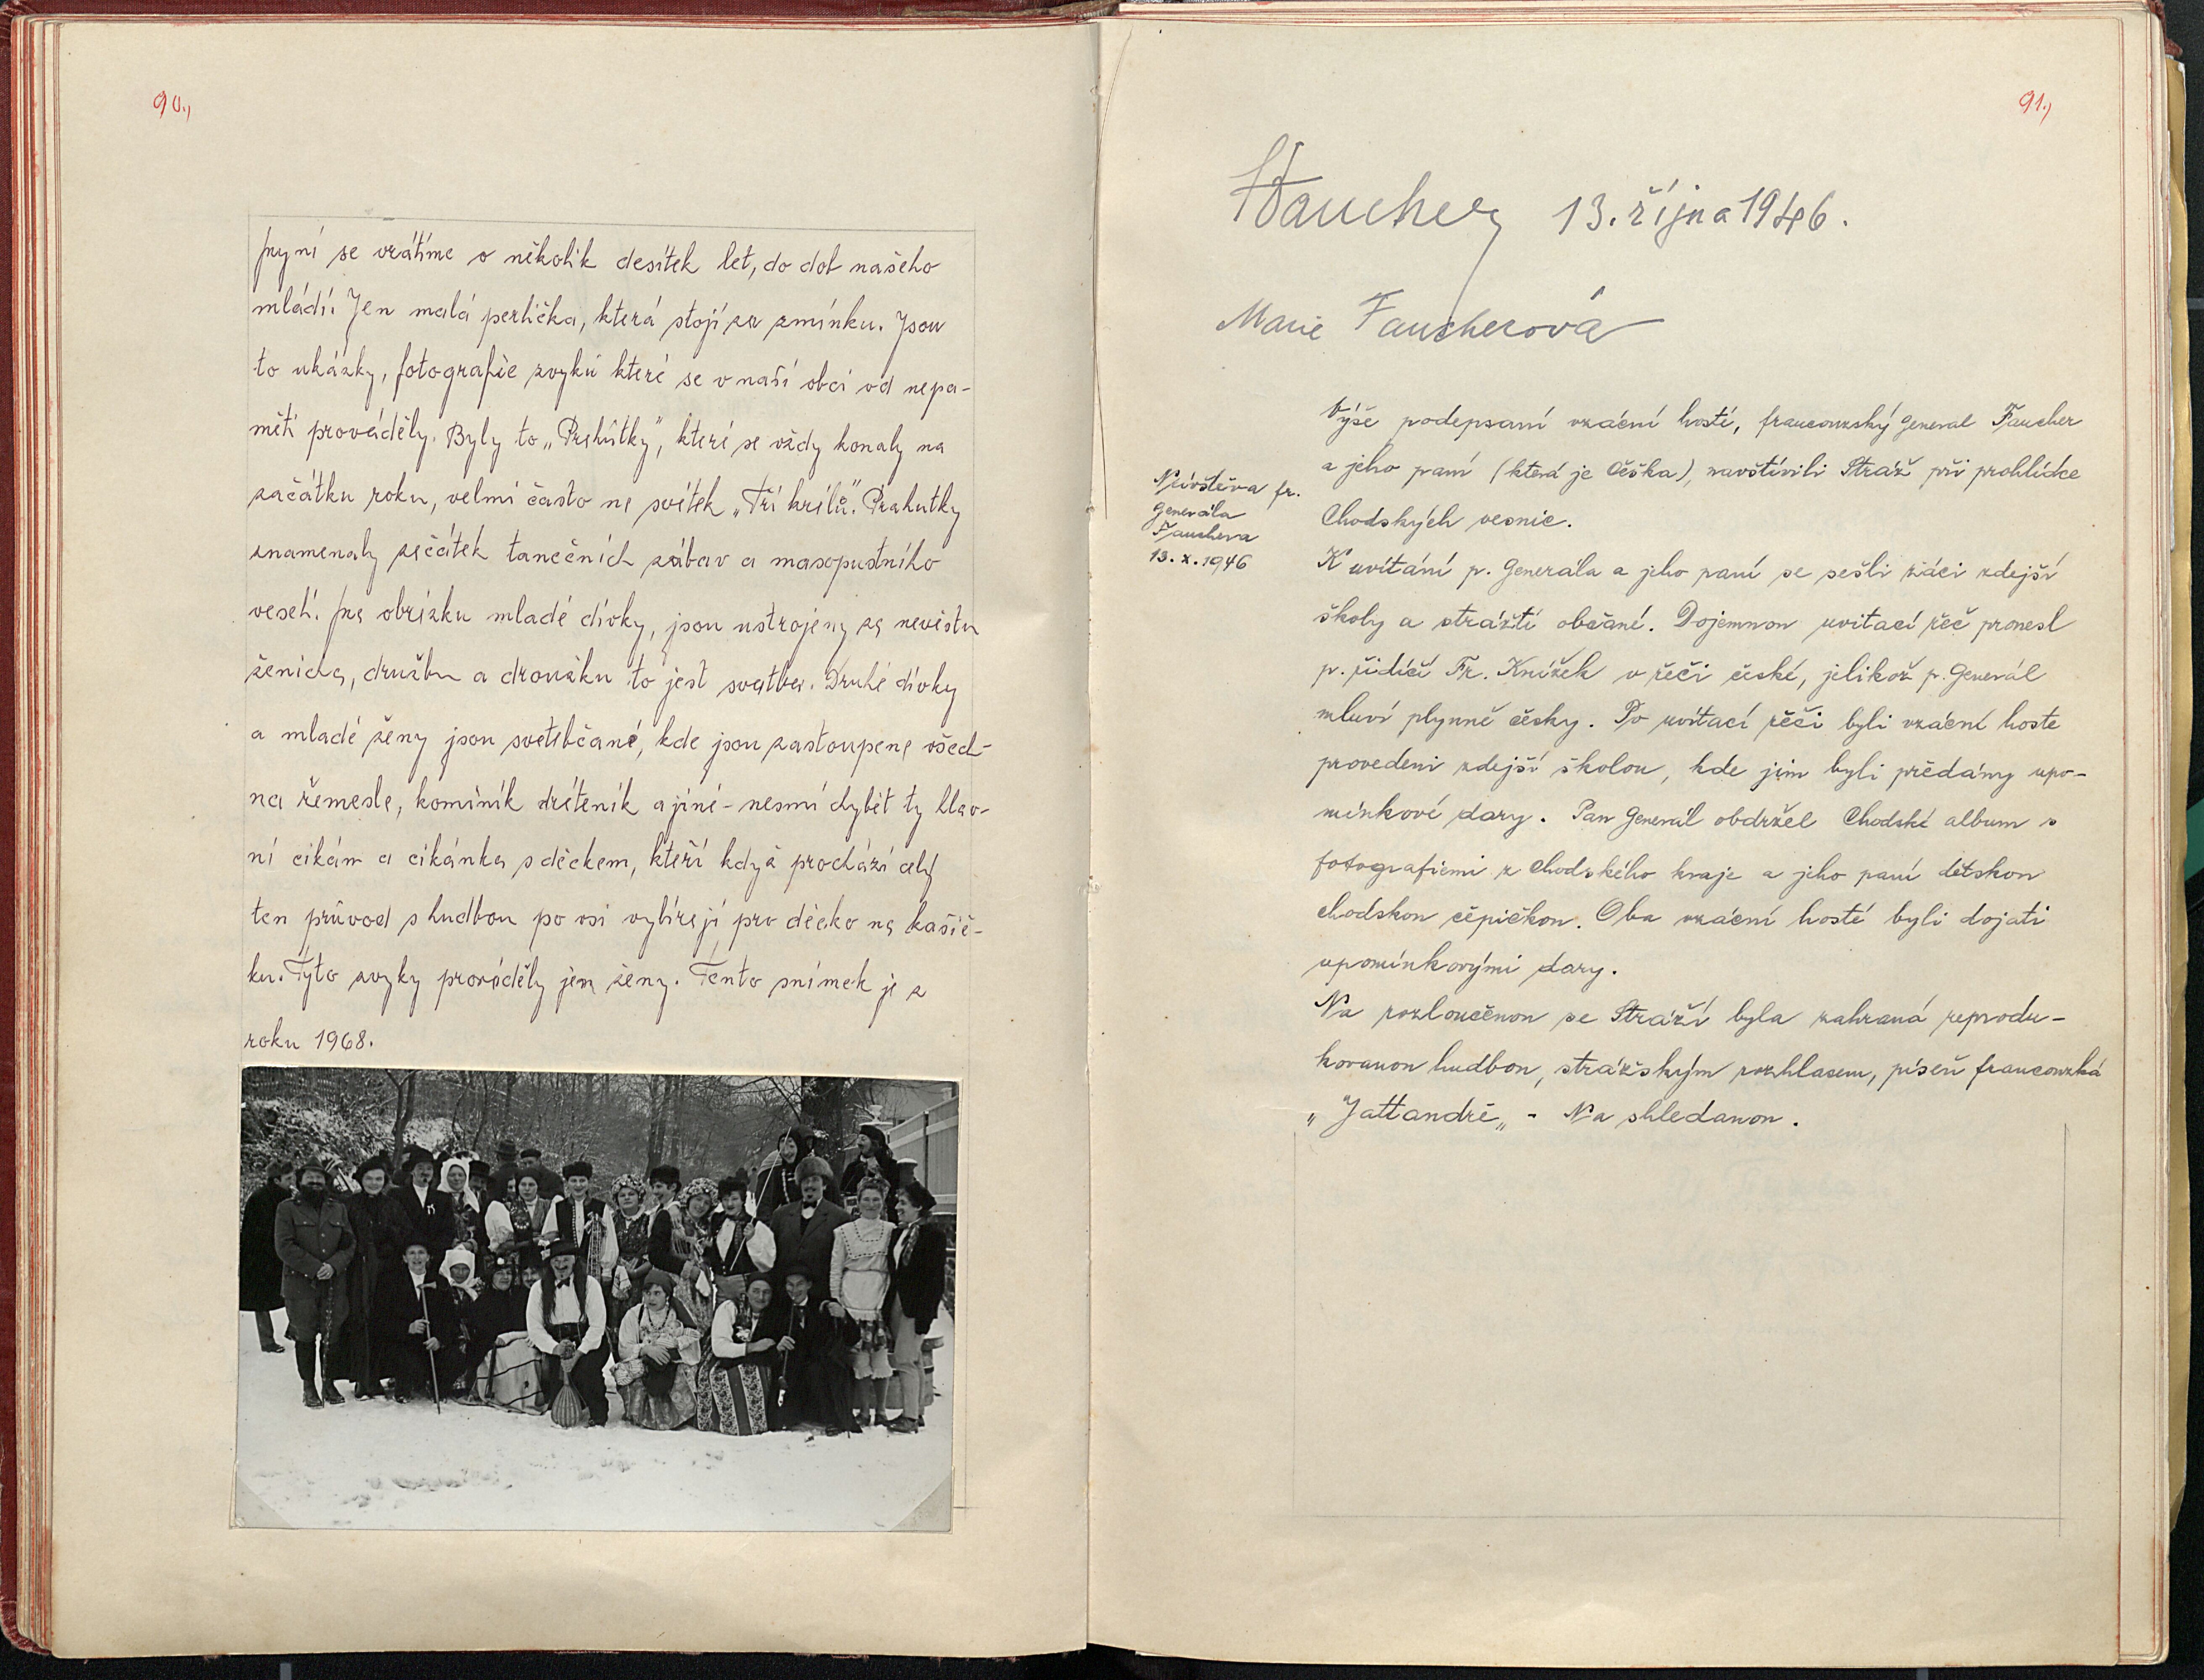 90.,
Nyní se vrátíme o několik desítek let, do dob našeho
mládí. Jen malá perlička, která stojí za zmínku. Jsou
to ukázky, fotografie zvyků které se v naší obci od nepa-
měti prováděly. Byly to „Prahûtky", které se vždy konaly na
začátku roku, velmi často na svátek „Tří králů". Prahutky
znamenaly začátek tanečních zábav a masopustního
veselí. Na obrázku mladé dívky, jsou ustrojeny za nevěstu
ženicha, družbu a drouzku to jest svatba. Druhé dívky
a mladé ženy jsou svatebčané, kde jsou zastoupena všech-
na řemesla, kominík dráteník a jiné - nesmí chybět ty hlav-
ní cikán a cikánka s děckem, kteří když prochází celý
ten průvod s hudbou po vsi vybírají pro děcko na kašič-
ku. Tyto zvyky prováděly jen ženy. Tento snímek je z
roku 1968.
91.,
Faucher 13. října 1946.
Marie Faucherová
Výše podepsaní vzácní hosté, francouzský General Faucher
a jeho paní (která je Češka), navštívili Stráž při prohlídce
Chodských vesnic.
Návštěva fr.
Generála
Fauchera
13. X. 1946
K uvítání p. Generála a jeho paní se sešli žáci zdejší
školy a strážtí občané. Dojemnou uvitací řeč pronesl
p. řidící Fr. Knížek v řeči české, jelikož p. Generál
mluví plynně česky. Po uvítací řěči byli vzácní hoste
provedeni zdejší školou, kde jim byli předány upo-
mínkové dary. Pan Generál obdržel Chodské album s
fotografiemi z Chodského kraje a jeho paní dětskou
chodskou čepičkou. Oba vzácní hosté byli dojati
upomínkovými dary.
Na rozloučenou se Stráží byla zahraná reprodu-
kovanou hudbou, strážským rozhlasem, píseň francouzká
„Jattandré„ - Na shledanou.